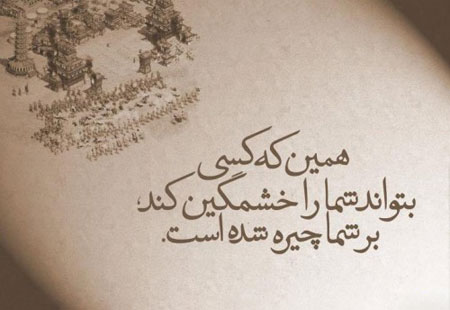 همین که کسی
بتواند شما را خشمگین کند،
بر شما چیره شده است.